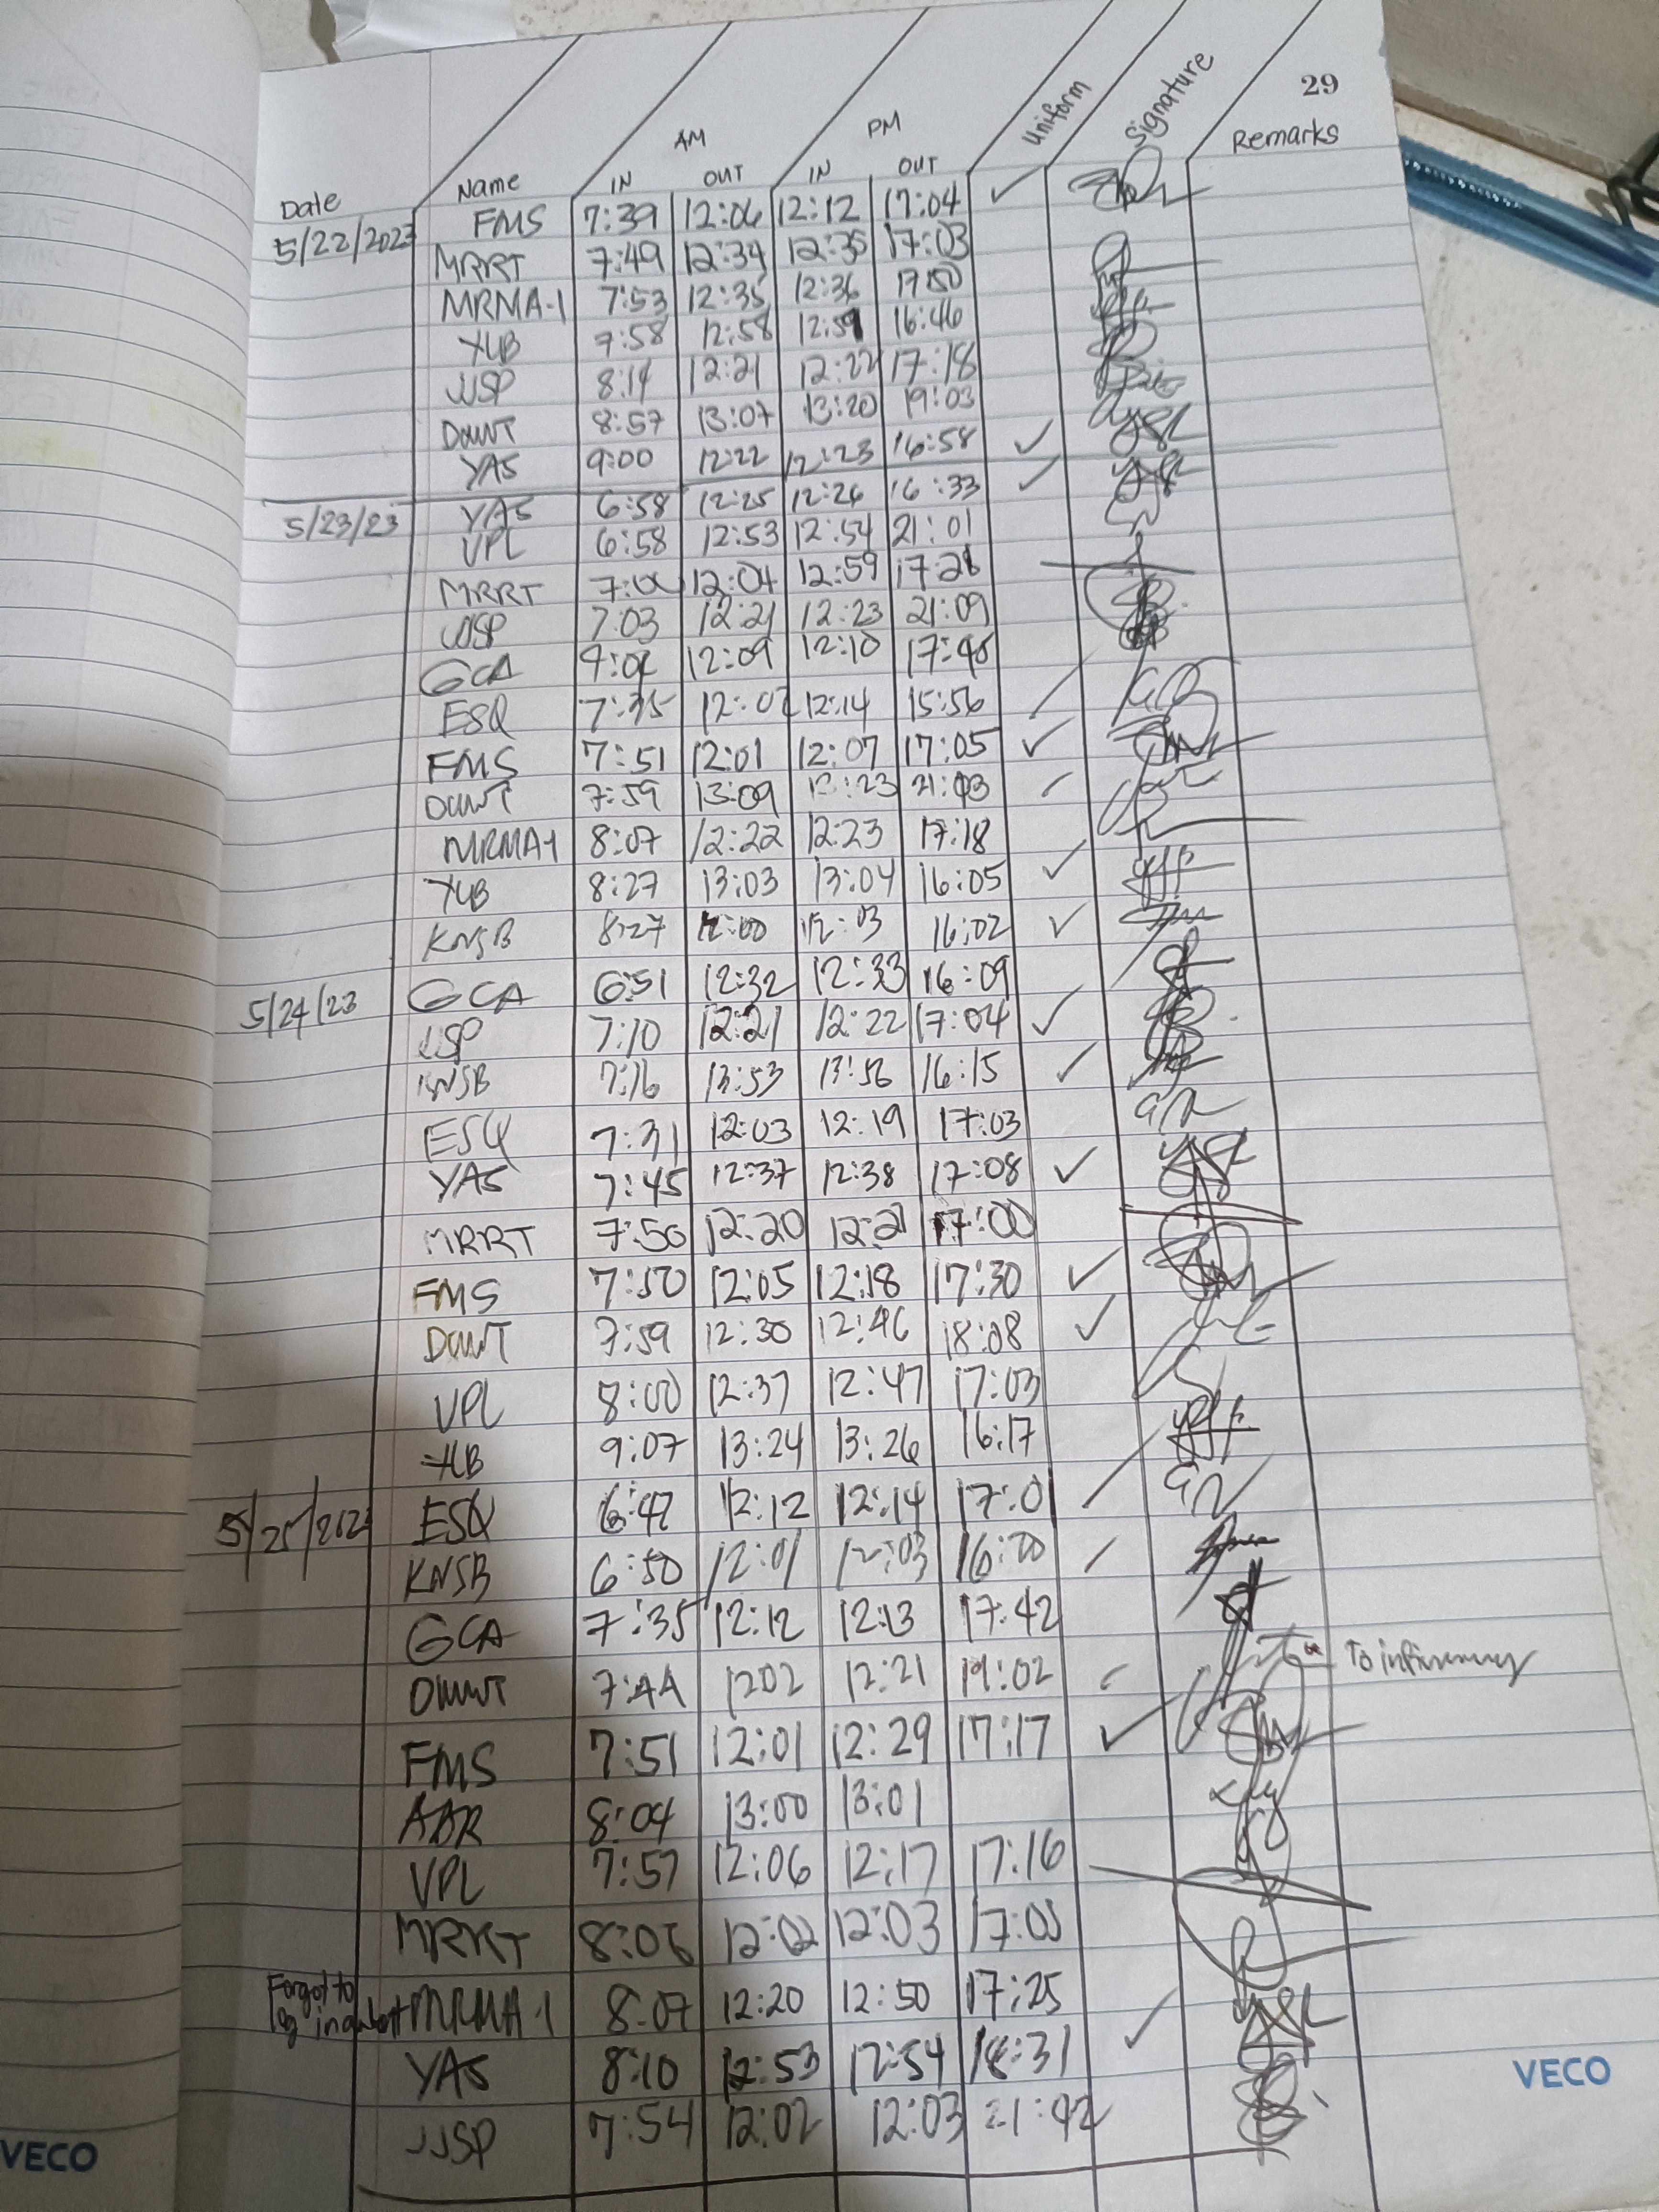 29
AM PM Uniform Signature Remarks
Date Name IN OUT IN OUT
5/22/2023 FMS 7:39 12:06 12:12 17:04 ✓
MRRT 7:49 12:34 12:35 17:03
MRMA-1 7:53 12:35 12:36 17:50
YLB 7:58 12:58 12:59 16:46
JJSP 8:14 12:21 12:22 17:18
DMWT 8:57 13:07 13:20 19:03
YAS 9:00 12:22 12:23 16:58 ✓
5/23/23 YAS 6:58 12:25 12:26 16:33 ✓
VPL 6:58 12:53 12:54 21:01
MRRT 12:04 12:59 17:28
JJSP 7:03 12:21 12:23 21:09
GCA 12:09 12:10 17:40
ESQ 7:35 12:02 12:14 15:56
FMS 7:51 12:01 12:07 17:05 ✓
DMWT 7:59 13:09 13:23 21:03
MRMA-1 8:07 12:22 12:23 17:18
YLB 8:27 13:03 13:04 16:05 ✓
KNSB 8:27 12:00 12:03 16:02 ✓
5/24/23 GCA 6:51 12:32 12:33 16:09
JJSP 7:10 12:21 12:22 17:04 ✓
KNSB 7:16 13:53 13:56 16:15 ✓
ESQ 7:31 12:03 12:19 17:03
YAS 7:45 12:37 12:38 17:08 ✓
MRRT 7:50 12:20 12:21 17:00
FMS 7:50 12:05 12:18 17:30 ✓
DMWT 7:59 12:30 12:46 18:08 ✓
VPL 8:00 12:37 12:47 17:03
YLB 9:07 13:24 13:26 16:17
5/25/2023 ESQ 6:47 12:12 12:14 17:01
KNSB 6:50 12:01 12:03 16:20
GCA 7:35 12:12 12:13 17:42
DMWT 7:44 1202 12:21 19:02 To infirmary
FMS 7:51 12:01 12:29 17:17 ✓
8:04 13:00 13:01
VPL 7:57 12:06 12:17 17:16
MRRT 8:06 12:02 12:03
Forgot to
log in MRMA-1 8:07 12:20 12:50 17:25
YAS 8:10 12:53 12:54 18:31 ✓
JJSP 7:54 12:02 12:03 21:42
VECO
VECO